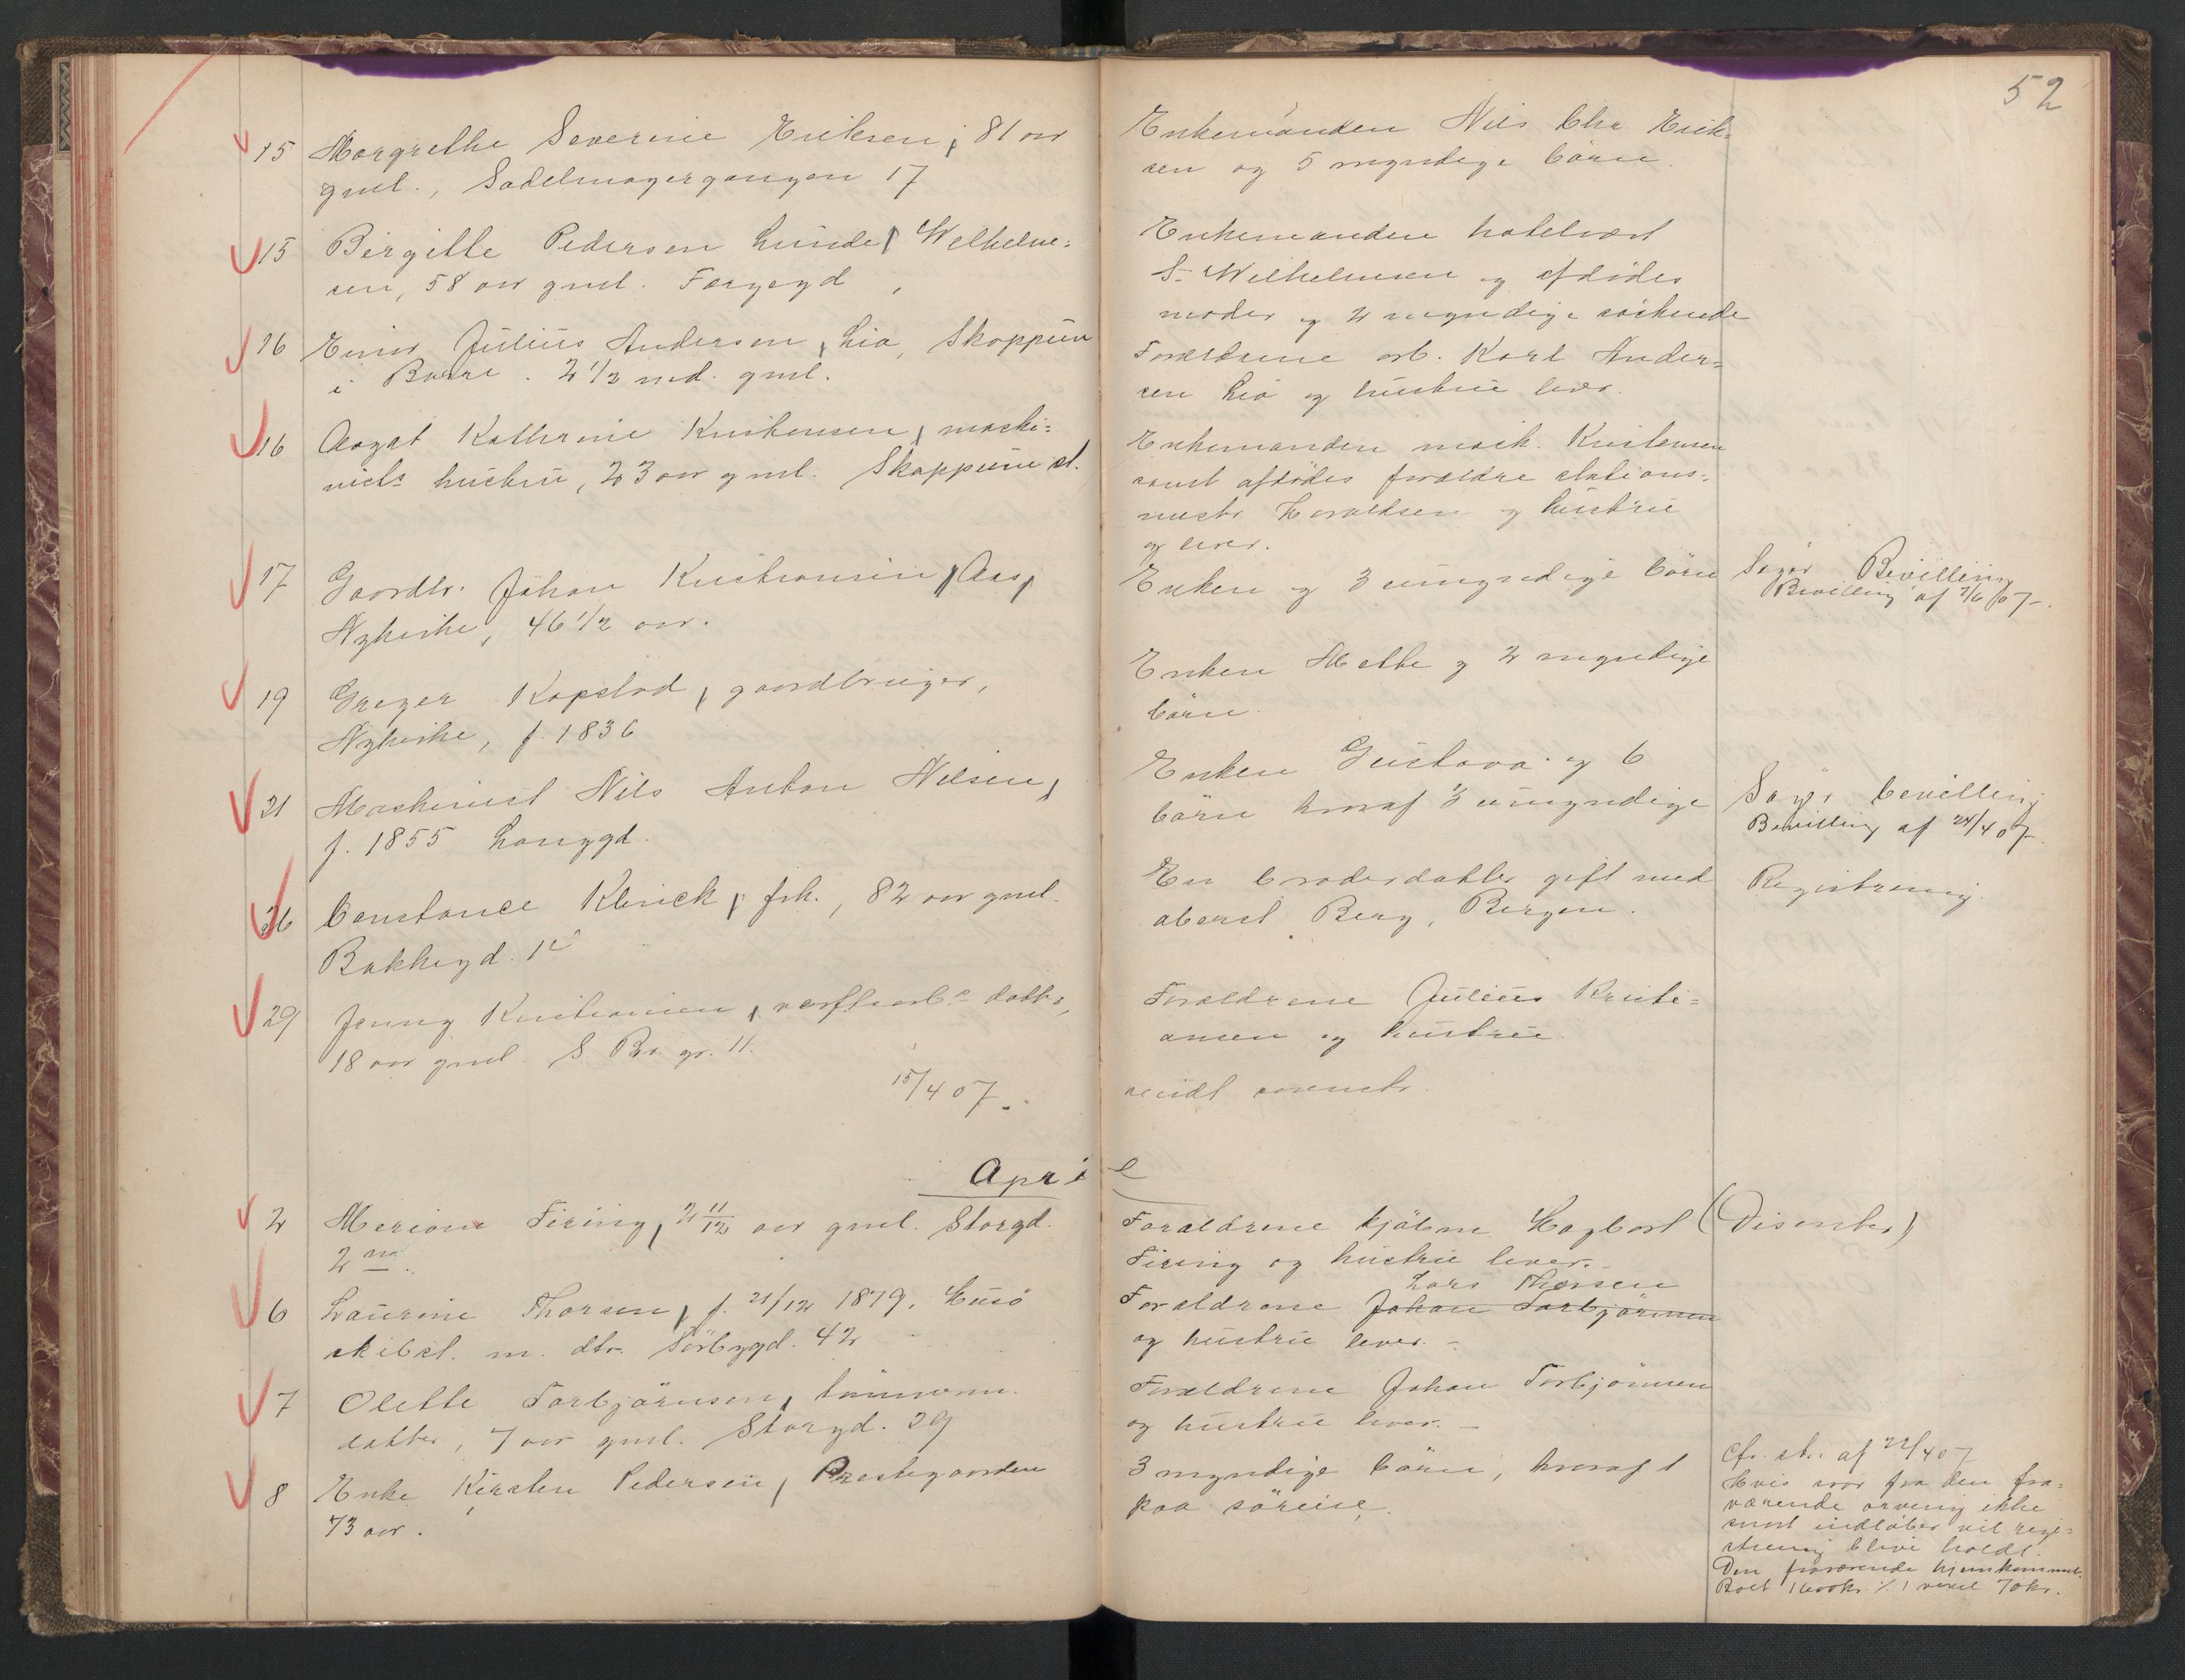 52
15 Margrethe Severine Eriksen, 81 aar
gml., Sadelmagergangen 17
Enkemanden Nils Chr Erik-
sen og 5 myndige børn.
15 Birgitte Pedersen Lunde Wilhelm-
sen, 58 aar gml. Færgegd
Enkemanden hotelvært
S. Wilhelmsen og afdødes
moder og 2 myndige søskende
16 Einar Julius Andersen Lia, Skoppum
i Borre. 2 1/2 md. gml.
Forældrene arb. Karl Ander-
sen Lia og hustru lever.
16 Aagot Kathrine Kristensen, maski-
nists hustru, 23 aar gml. Skoppum st.
Enkemanden mask. Kristensen
samt afdødes forældre stations-
mester Haraldsen og hustru
og lever.
17 Gaardbr. Johan Kristiansen, Aas,
Nykirke, 46 1/2 aar.
Enken og 3 umyndige børn
Søger Bevilling
Bevilling af 7/6 07.
19 Greger Kopstad, gaardbruger,
Nykirke, f. 1836
Enken Mette og 2 myndige
børn.
21 Maskinist Nils Anton Nilsen,
f. 1855 Langgd.
Enken Gustava og 6
børn hvoraf 3 umyndige
Søger bevilling
Bevilling af 24/4 07.
26 Constance Klinck, frk., 82 aar gml.
Bakkegd. 1
En broderdatter gift med
oberst Berg, Bergen.
Registrering
29 Jenny Kristiansen, verftsarb. datter,
18 aar gml. S. Br. gr. 11.
Forældrene Julius Kristi-
ansen og hustru.
15/4 07.
sendt sorenskr.
April
2 Marion Firing, 2 11/12 aar gml. Storgd.
2
Forældrene kjøbm. Hagbart (Disenter)
Firing og hustru lever.
6 Laurine Thorsen, f. 21/12 1879, Husø
skibst. m. dtr. Sørbygd. 42
Lars Thorsen
Forældrene Johan Torbjørnsen
og hustru lever.
7 Olette Torbjørnsen, tømmerm.
datter, 7 aar gml. Storgd. 29
Forældrene Johan Torbjørnsen
og hustru lever.
8 Enke Kirsten Pedersen, Prestegaarden
73 aar.
3 myndige børn, hvoraf 1
paa søreise.
Cfr. skr. af 22/4 07
Hvis svar fra den fra-
værende arving ikke
snart indløber vil regi-
strering blive holdt.
Den fraværende hjemkommet.
Boet 1600 kr. ÷ 1 vexel 70 kr.